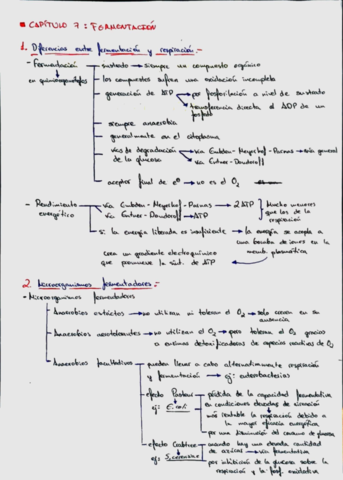 CAPÍTULO 7: FERMENTACIÓN
1. Diferencias entre fermentación y respiración:-
- Fermentación → sustrato → siempre un compuesto orgánico
en quimioorganotrofos
los compuestos sufren una oxidación incompleta
generación de ATP → por fosforilación a nivel de sustrato
→ transferencia directa al ADP de un
fosfato
siempre anaerobia
generalmente en el citoplasma
vías de degradación → vía Embden-Meyerhof-Parnas → más general
de la glucosa → vía Entner-Doudoroff
aceptor final de e⁻ → no es el O₂
- Rendimiento → vía Embden-Meyerhof-Parnas → 2 ATP
energético → vía Entner-Doudoroff → ATP
Mucho menores
que los de la
respiración
si la energía liberada es insuficiente → la energía se acopla a
una bomba de iones en la
memb. plasmática
crea un gradiente electroquímico
que promueve la sínt. de ATP
2. Microorganismos fermentadores:-
- Microorganismos fermentadores
Anaerobios estrictos → no utilizan ni toleran el O₂ → solo crecen en su
ausencia
Anaerobios aerotolerantes → no utilizan el O₂ → pero toleran el O₂ gracias
a enzimas detoxificadoras de especies reactivas de O₂
Anaerobios facultativos → pueden llevar a cabo alternativamente respiración
y fermentación → ej: enterobacterias
efecto Pasteur → pérdida de la capacidad fermentativa
ej: E. coli
en condiciones elevadas de aireación
más rentable la respiración debido a
la mayor eficacia energética
por una disminución del consumo de glucosa
efecto Crabtree → cuando hay una elevada cantidad
ej: S. cerevisiae
de azúcar → vía fermentativa
por inhibición de la glucosa sobre la
respiración y la fosf. oxidativa